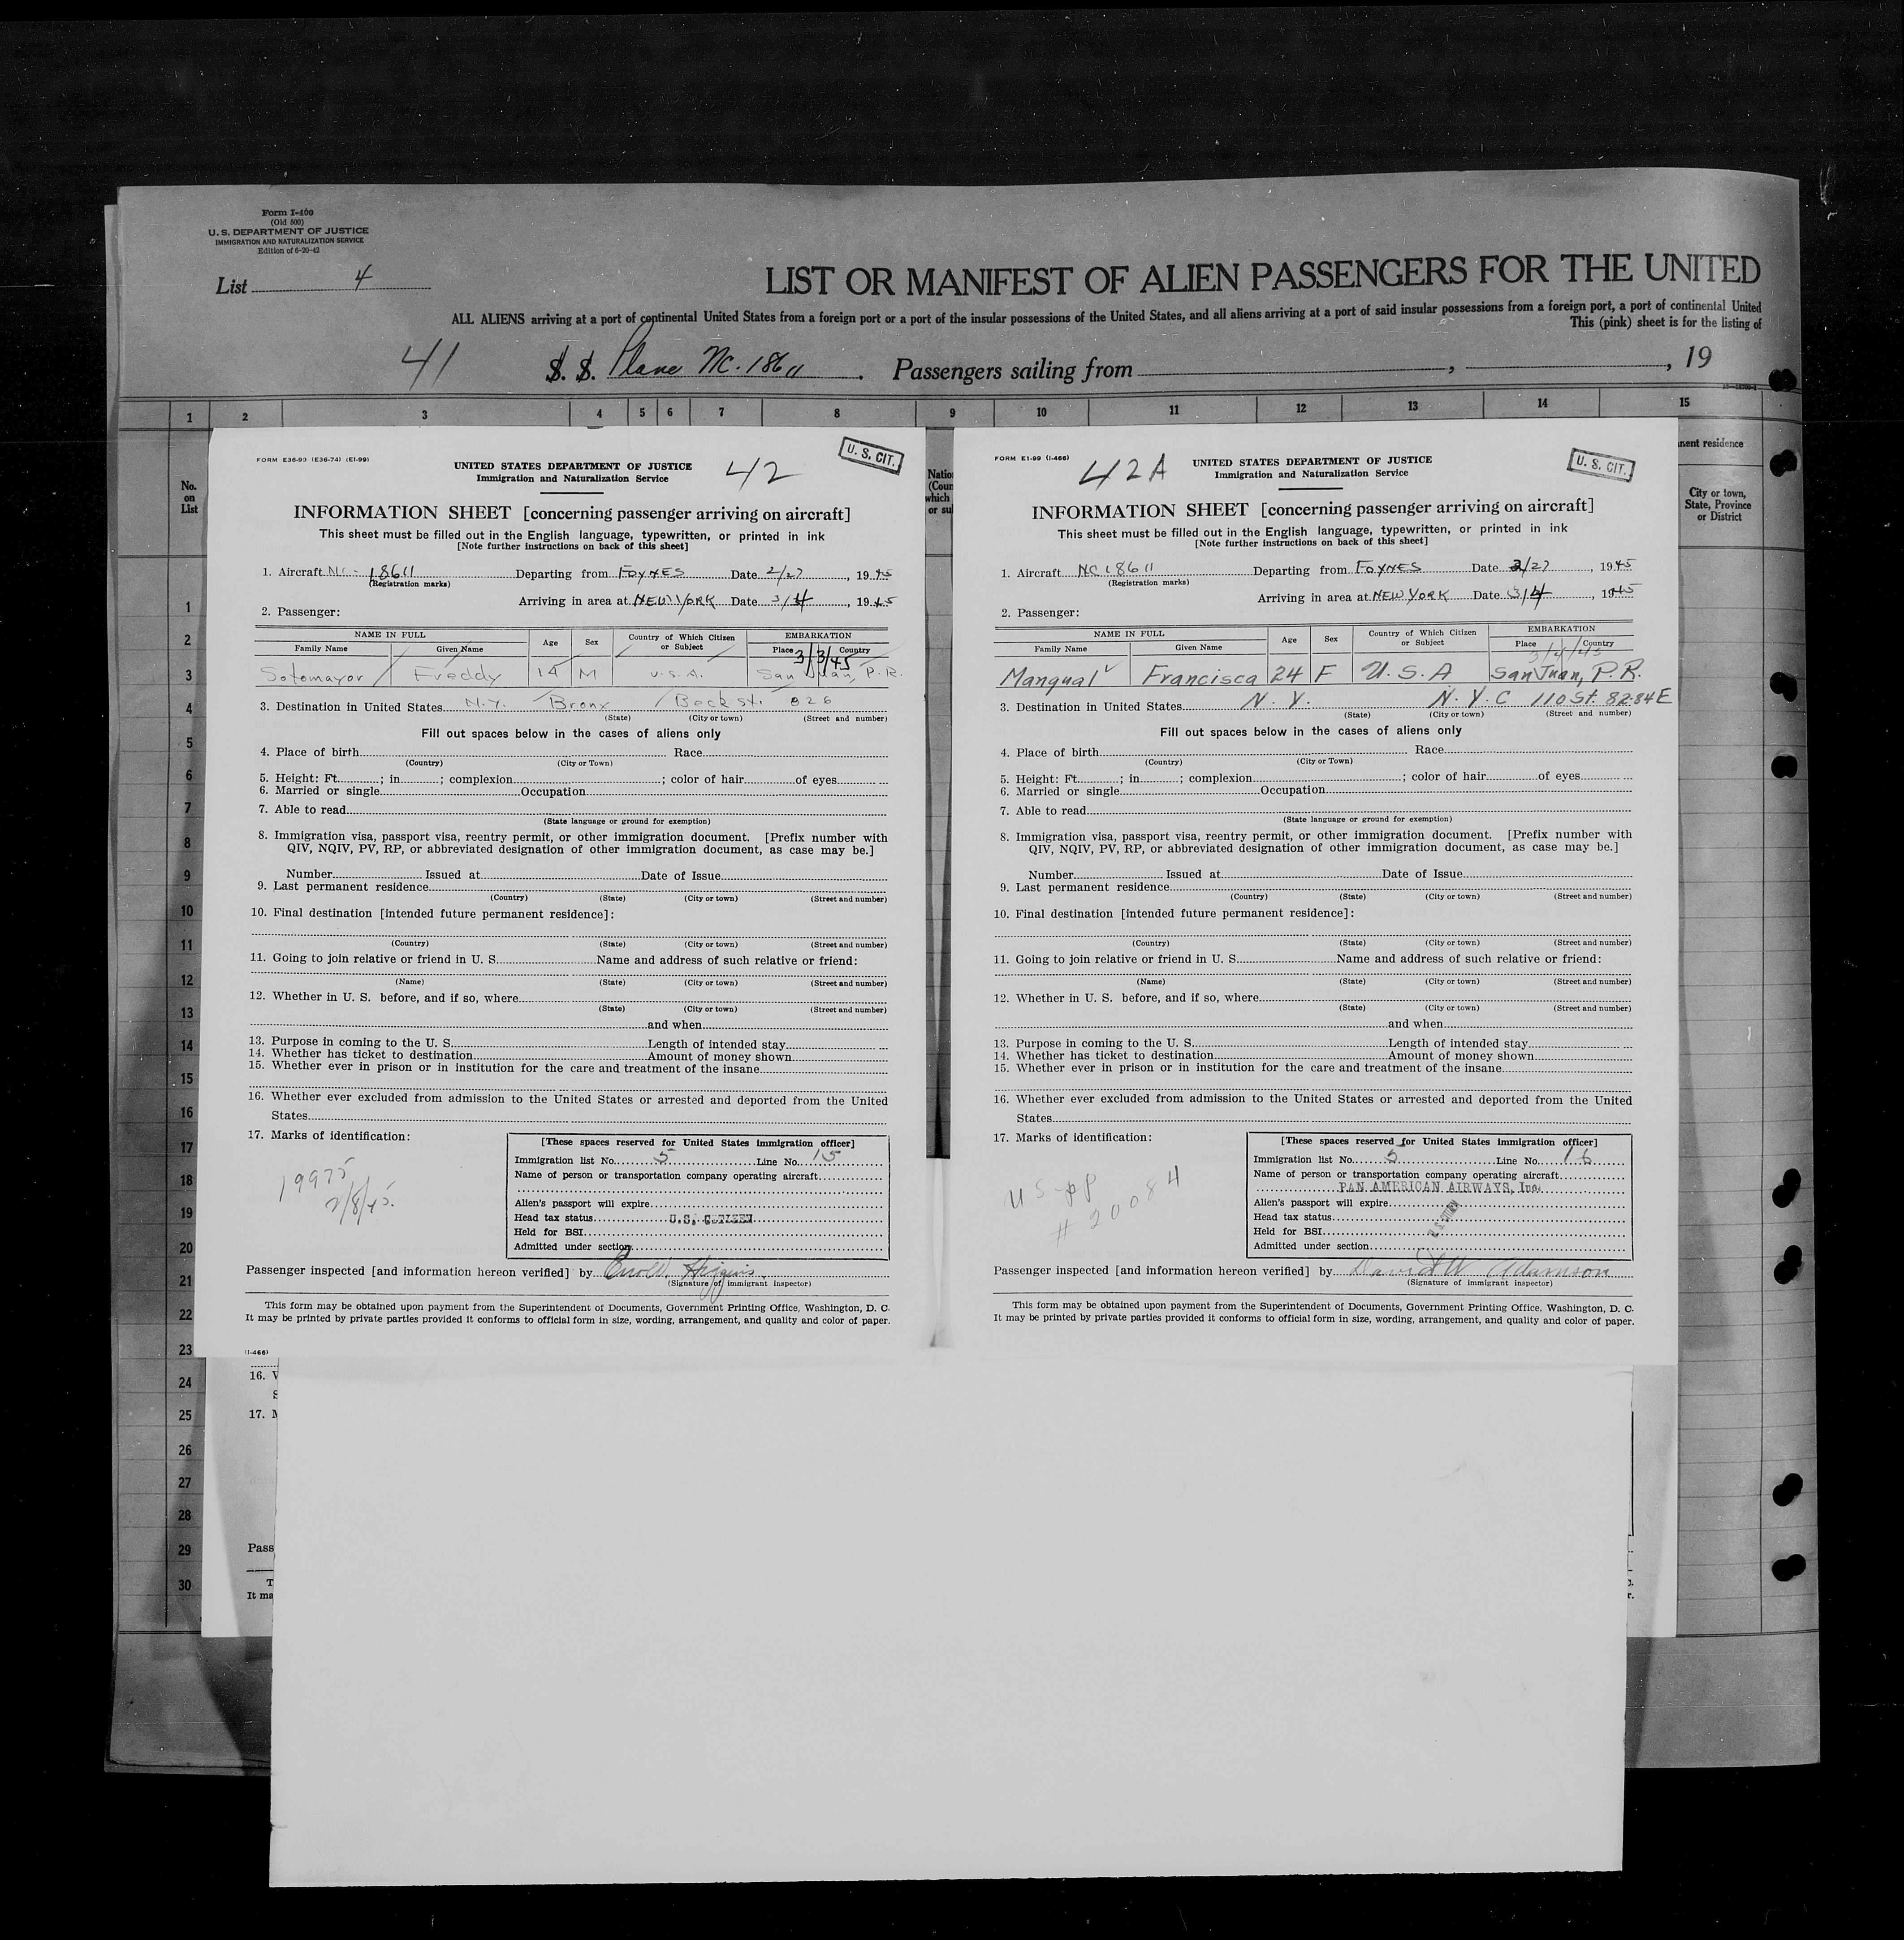 Form I-400
(Old 500)
U. S. DEPARTMENT OF JUSTICE
IMMIGRATION AND NATURALIZATION SERVICE
Edition of 6-20-42
List 4
LIST OR MANIFEST OF ALIEN PASSENGERS FOR THE UNITED
ALL ALIENS arriving at a port of continental United States from a foreign port or a port of the insular possessions of the United States, and all aliens arriving at a port of said insular possessions from a foreign port, a port of continental United
This (pink) sheet is for the listing of
41 S. S. Plane NC. 18611 . Passengers sailing from , , 19
1 2 3 4 5 6 7 8 9 10 11 12 13 14 15
No. on List
Natio
(Coun
which
or su
nent residence
City or town,
State, Province
or District
1
2
3
4
5
6
7
8
9
10
11
12
13
14
15
16
17
18
19
20
21
22
23
24
25
26
27
28
29
30
FORM E36-99 (E36-74) (E1-99)
UNITED STATES DEPARTMENT OF JUSTICE
Immigration and Naturalization Service
42
U. S. CIT.
INFORMATION SHEET [concerning passenger arriving on aircraft]
This sheet must be filled out in the English language, typewritten, or printed in ink
[Note further instructions on back of this sheet]
1. Aircraft NC- 18611 Departing from FOYNES Date 2/27, 1945
(Registration marks)
Arriving in area at NEW YORK Date 3/4, 1945
2. Passenger:
NAME IN FULL Age Sex Country of Which Citizen or Subject EMBARKATION
Family Name Given Name Place Country
3/3/45
Sotomayor Freddy 14 M U.S.A. San Juan, P.R.
3. Destination in United States N.Y. Bronx Beck St. 826
(State) (City or town) (Street and number)
Fill out spaces below in the cases of aliens only
4. Place of birth Race
(Country) (City or Town)
5. Height: Ft. ; in ; complexion ; color of hair of eyes
6. Married or single Occupation
7. Able to read
(State language or ground for exemption)
8. Immigration visa, passport visa, reentry permit, or other immigration document. [Prefix number with
QIV, NQIV, PV, RP, or abbreviated designation of other immigration document, as case may be.]
Number Issued at Date of Issue
9. Last permanent residence
(Country) (State) (City or town) (Street and number)
10. Final destination [intended future permanent residence]:
(Country) (State) (City or town) (Street and number)
11. Going to join relative or friend in U. S. Name and address of such relative or friend:
(Name) (State) (City or town) (Street and number)
12. Whether in U. S. before, and if so, where
(State) (City or town) (Street and number)
and when
13. Purpose in coming to the U. S. Length of intended stay
14. Whether has ticket to destination Amount of money shown
15. Whether ever in prison or in institution for the care and treatment of the insane
16. Whether ever excluded from admission to the United States or arrested and deported from the United
States
17. Marks of identification:
19975
2/8/45.
[These spaces reserved for United States immigration officer]
Immigration list No. 5 Line No. 15
Name of person or transportation company operating aircraft
Alien's passport will expire
Head tax status U.S. CITIZEN
Held for BSI
Admitted under section
Passenger inspected [and information hereon verified] by Higgins
(Signature of immigrant inspector)
This form may be obtained upon payment from the Superintendent of Documents, Government Printing Office, Washington, D. C.
It may be printed by private parties provided it conforms to official form in size, wording, arrangement, and quality and color of paper.
(I-466)
16. V
S
17. M
Pass
T
It ma
FORM E1-99 (I-466)
42A
UNITED STATES DEPARTMENT OF JUSTICE
Immigration and Naturalization Service
U. S. CIT.
INFORMATION SHEET [concerning passenger arriving on aircraft]
This sheet must be filled out in the English language, typewritten, or printed in ink
[Note further instructions on back of this sheet]
1. Aircraft NC18611 Departing from FOYNES Date 2/27, 1945
(Registration marks)
Arriving in area at NEW YORK Date 3/4, 1945
2. Passenger:
NAME IN FULL Age Sex Country of Which Citizen or Subject EMBARKATION
Family Name Given Name Place Country
3/4/45
Mangual Francisca 24 F U.S.A San Juan, P.R.
3. Destination in United States N.Y. N.Y.C 110 St. 8284E
(State) (City or town) (Street and number)
Fill out spaces below in the cases of aliens only
4. Place of birth Race
(Country) (City or Town)
5. Height: Ft. ; in ; complexion ; color of hair of eyes
6. Married or single Occupation
7. Able to read
(State language or ground for exemption)
8. Immigration visa, passport visa, reentry permit, or other immigration document. [Prefix number with
QIV, NQIV, PV, RP, or abbreviated designation of other immigration document, as case may be.]
Number Issued at Date of Issue
9. Last permanent residence
(Country) (State) (City or town) (Street and number)
10. Final destination [intended future permanent residence]:
(Country) (State) (City or town) (Street and number)
11. Going to join relative or friend in U. S. Name and address of such relative or friend:
(Name) (State) (City or town) (Street and number)
12. Whether in U. S. before, and if so, where
(State) (City or town) (Street and number)
and when
13. Purpose in coming to the U. S. Length of intended stay
14. Whether has ticket to destination Amount of money shown
15. Whether ever in prison or in institution for the care and treatment of the insane
16. Whether ever excluded from admission to the United States or arrested and deported from the United
States
17. Marks of identification:
US PP
# 20084
[These spaces reserved for United States immigration officer]
Immigration list No. 5 Line No. 16
Name of person or transportation company operating aircraft
PAN AMERICAN AIRWAYS, Inc.
Alien's passport will expire
Head tax status
Held for BSI
Admitted under section
Passenger inspected [and information hereon verified] by David W Adamson
(Signature of immigrant inspector)
This form may be obtained upon payment from the Superintendent of Documents, Government Printing Office, Washington, D. C.
It may be printed by private parties provided it conforms to official form in size, wording, arrangement, and quality and color of paper.